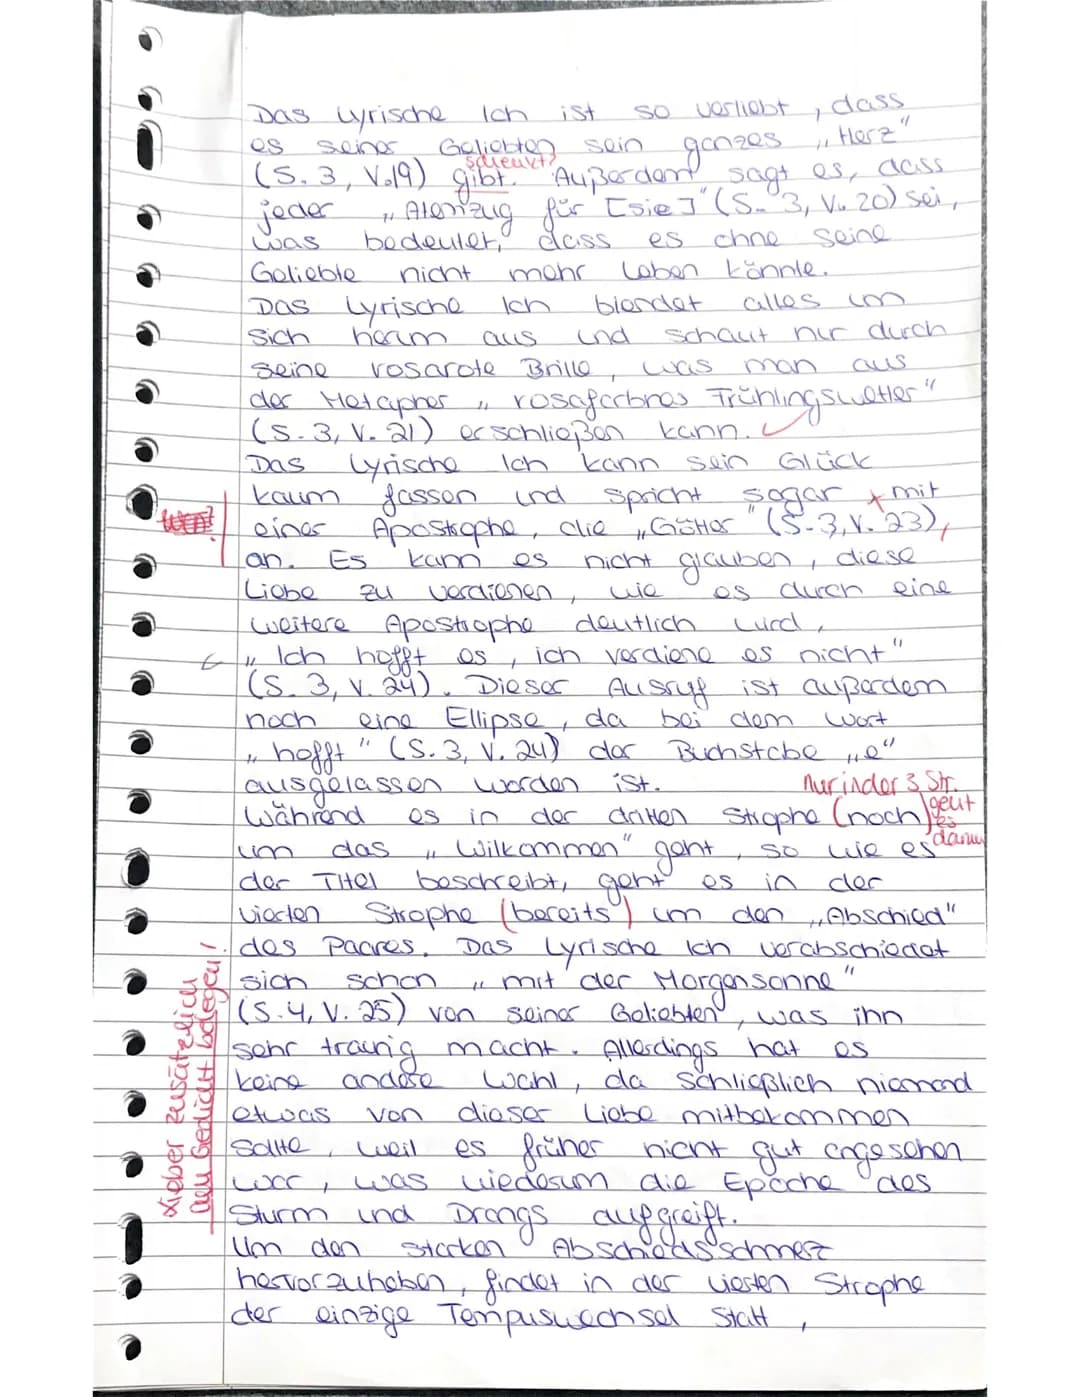 Das Lyrische Ich ist so verliebt, dass
es seiner Geliebten sein ganzes „Herz"
schenkt?
(S. 3, V. 19) gibt. Außerdem sagt es, dass
jeder „Atemzug für [sie]" (S. 3, V. 20) sei,
was bedeutet, dass es ohne seine
Geliebte nicht mehr leben könnte.
Das Lyrische Ich blendet alles um
sich herum aus und schaut nur durch
seine rosarote Brille, was man aus
der Metapher „rosafarbnes Frühlingswetter"
(S. 3, V. 21) erschließen kann.
Das Lyrische Ich kann sein Glück
kaum fassen und spricht sogar mit
einer Apostrophe, die „Götter" (S. 3, V. 23),
an. Es kann es nicht glauben, diese
Liebe zu verdienen, wie es durch eine
weitere Apostrophe deutlich wird,
„Ich hofft es, ich verdiene es nicht"
(S. 3, V. 24). Dieser Ausruf ist außerdem
noch eine Ellipse, da bei dem Wort
„hofft" (S. 3, V. 24) der Buchstabe „e"
ausgelassen worden ist.
Nur in der 3. Str.
geht
es
darum
Während es in der dritten Strophe (noch)
um das „Wilkommen" geht, so wie es
der Titel beschreibt, geht es in der
vierten Strophe (bereits) um den „Abschied"
des Paares. Das Lyrische Ich verabschiedet
sich schon „mit der Morgensonne"
(S. 4, V. 25) von seiner Geliebten, was ihn
sehr traurig macht. Allerdings hat es
keine andere Wahl, da schließlich niemand
etwas von dieser Liebe mitbekommen
sollte, weil es früher nicht gut angesehen
war, was wiederum die Epoche des
Sturm und Drangs aufgreift.
Lieber zusätzlich
am Gedicht belegen!
Um den starken Abschiedsschmerz
hervorzuheben, findet in der vierten Strophe
der einzige Tempuswechsel statt,